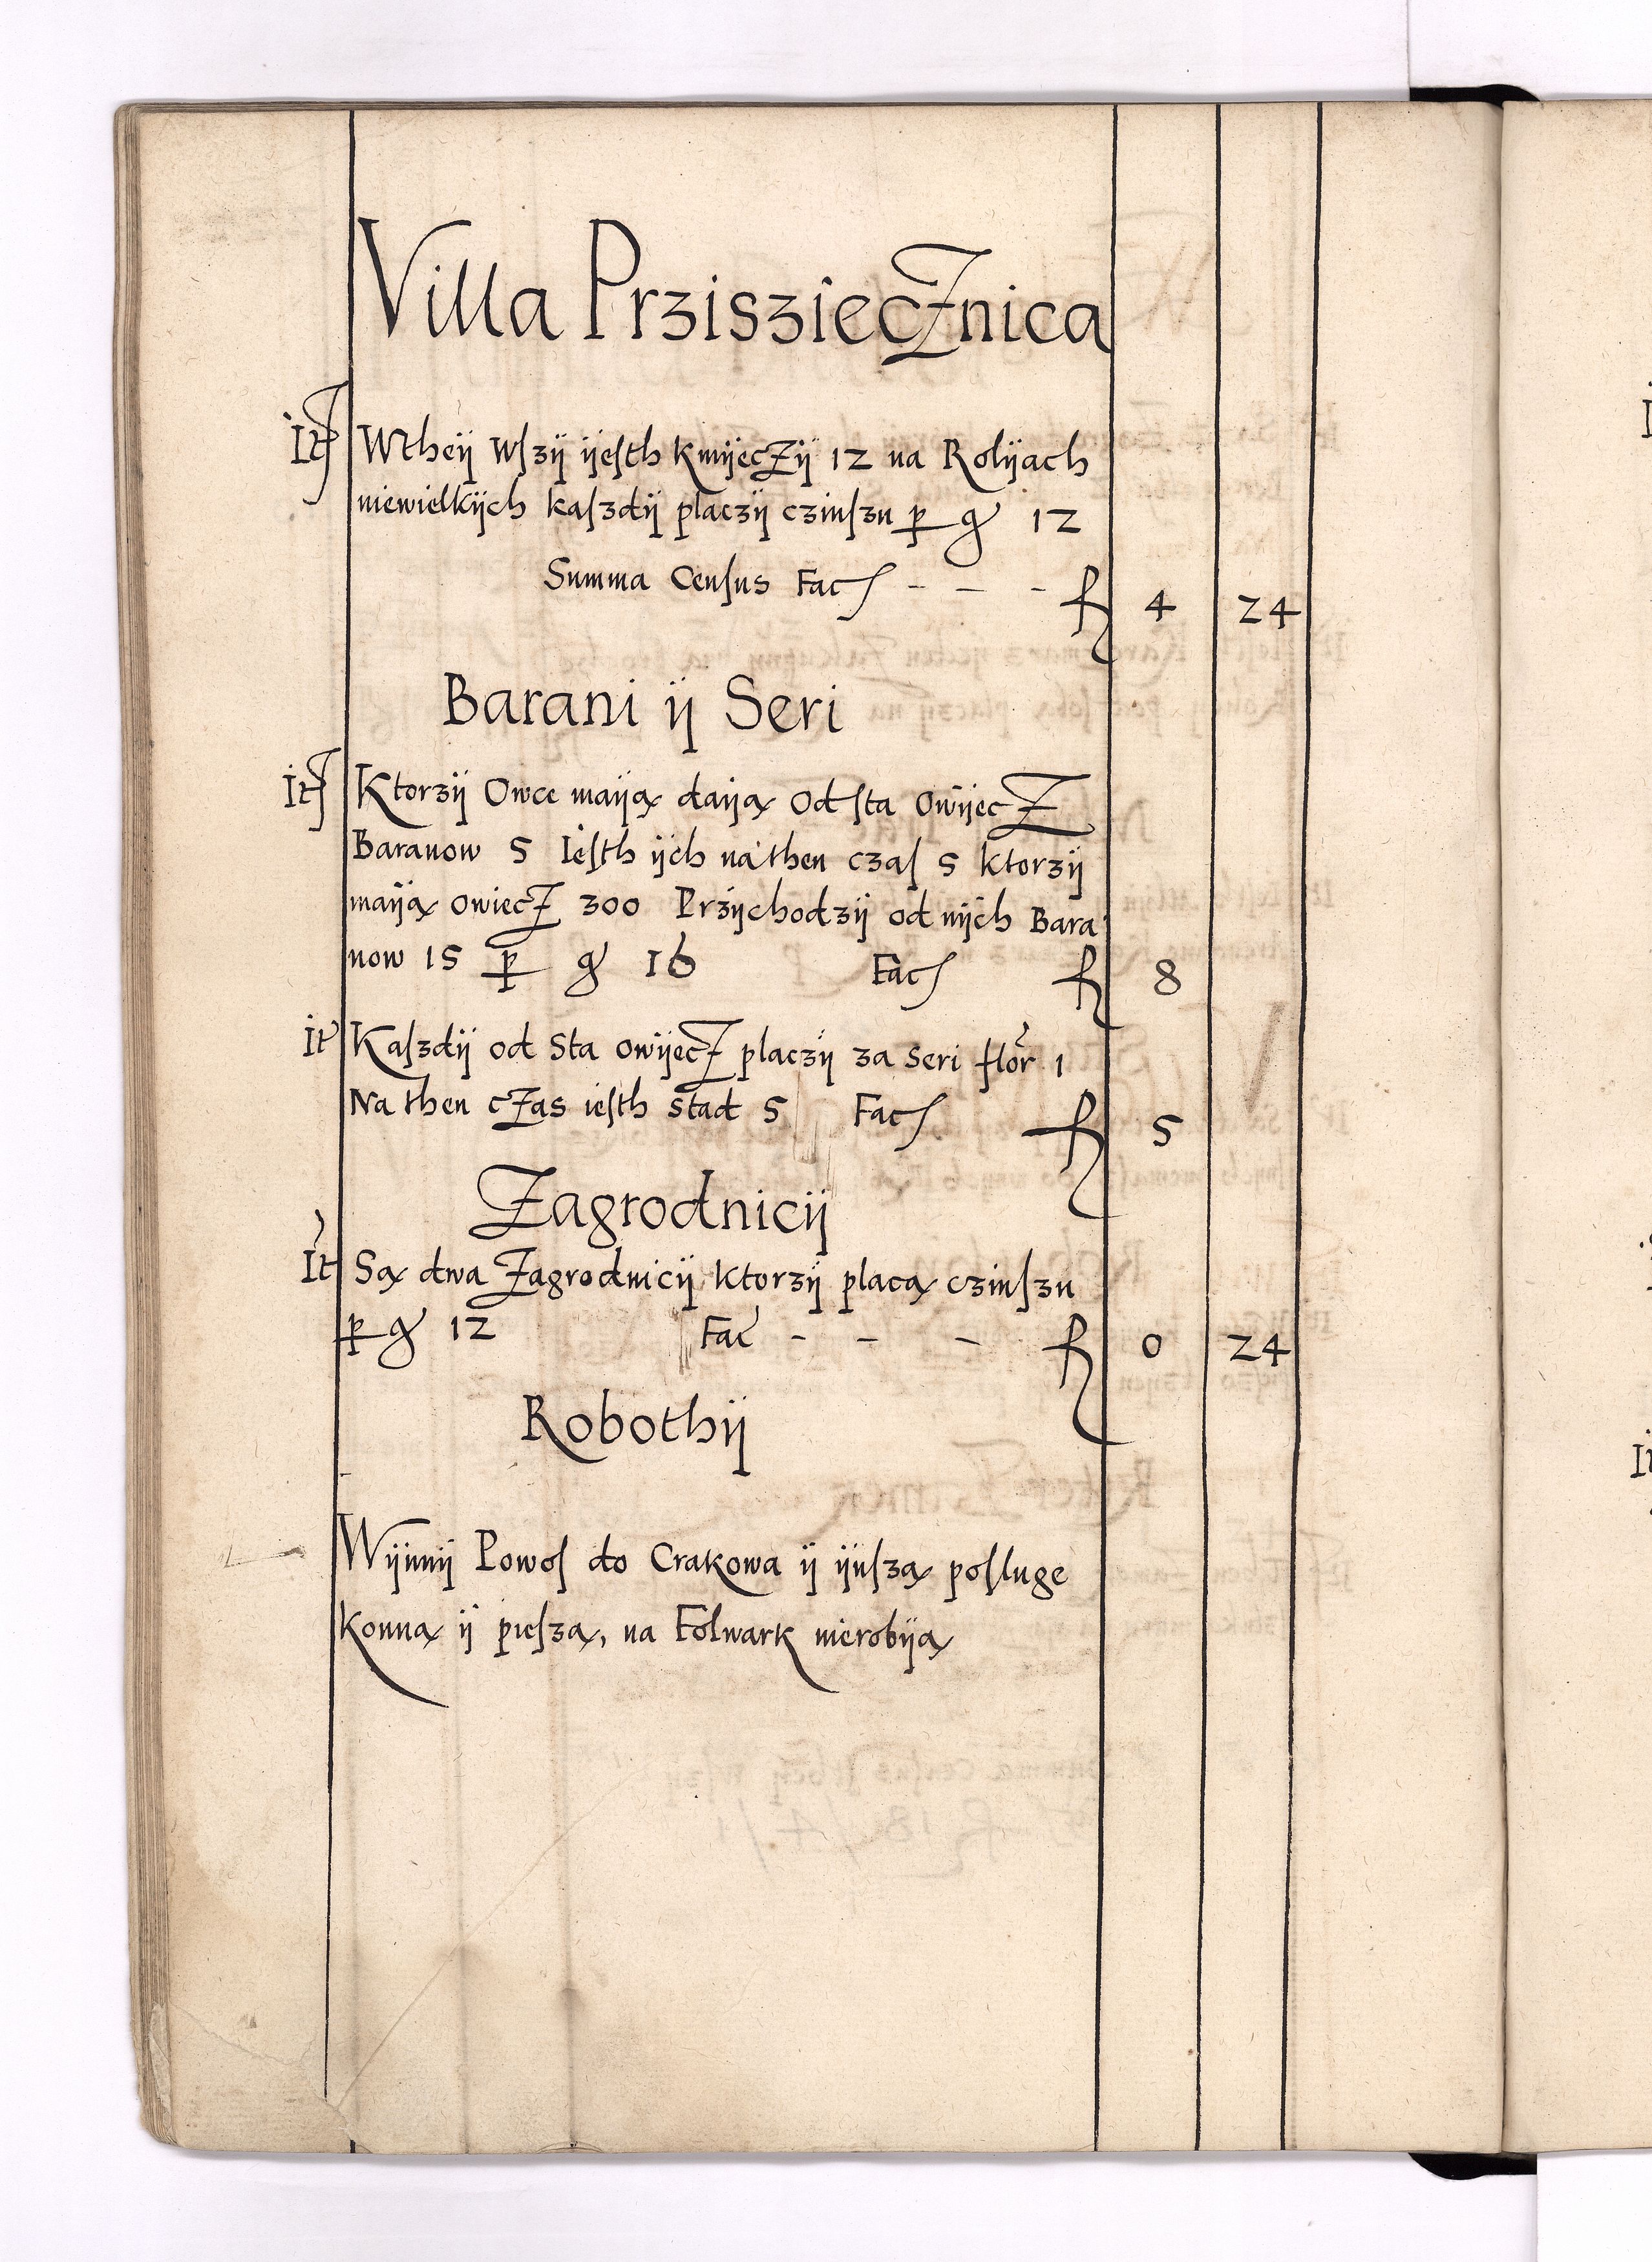 Villa Przisziecznica
It Wtheÿ Wſzÿ ÿeſth Kmÿeczÿ 12 na Rolÿach
niewielkÿch kaſzdÿ placzÿ czinſzu p gr 12
Summa Cenſus Fac - - - fl 4 24
Barani ÿ Seri
It Ktorzÿ Owce maÿą daÿą Od ſta Owÿecz
Baranow 5 Ieſth ÿch na then czaſ 5 ktorzÿ
maÿą owiecz 300 Przÿchodzÿ od nÿch Bara
now 15 p gr 16 Fac fl 8
It Kaſzdÿ od Sta owÿecz placzÿ za Seri flor 1
Na then czas ieſth stad 5 Fac fl 5
Zagrodnicÿ
It Są dwa Zagrodnicÿ Ktorzÿ placą czinſzu
p gr 12 Fac - - - fl 0 24
Robothÿ
Wÿnnÿ Powoſ do Crakowa ÿ ÿnſzą poſluge
konną ÿ pieſzą, na Folwark nierobÿą